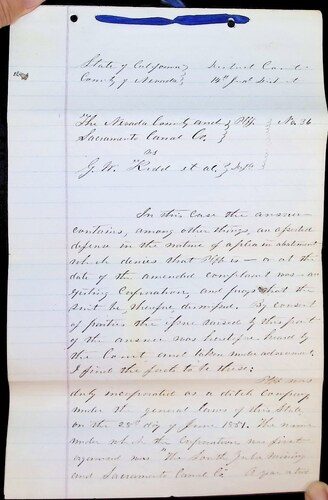 State of California } District Court
County of Nevada } 14th Jud. District
The Nevada County and } Plff. } No. 26
Sacramento Canal Co.
vs
G. W. Kidd et al. } Defts
In this case the answer
contains, among other things, an affected
defense in the nature of a plea in abatement
which denies that Plff is — or at the
date of the amended complaint was — an
existing Corporation, and prays that the
suit be, therefore, dismissed. By consent
of parties the issue raised by this part
of the answer was first heard by
the Court and taken under advisement.
I find the facts to be these:
Plff was
duly incorporated as a ditch company
under the general laws of this State,
on the day of June 1857. The name
under which the Corporation was first
organized was "The South Yuba Mining
and Sacramento Canal Co." A year